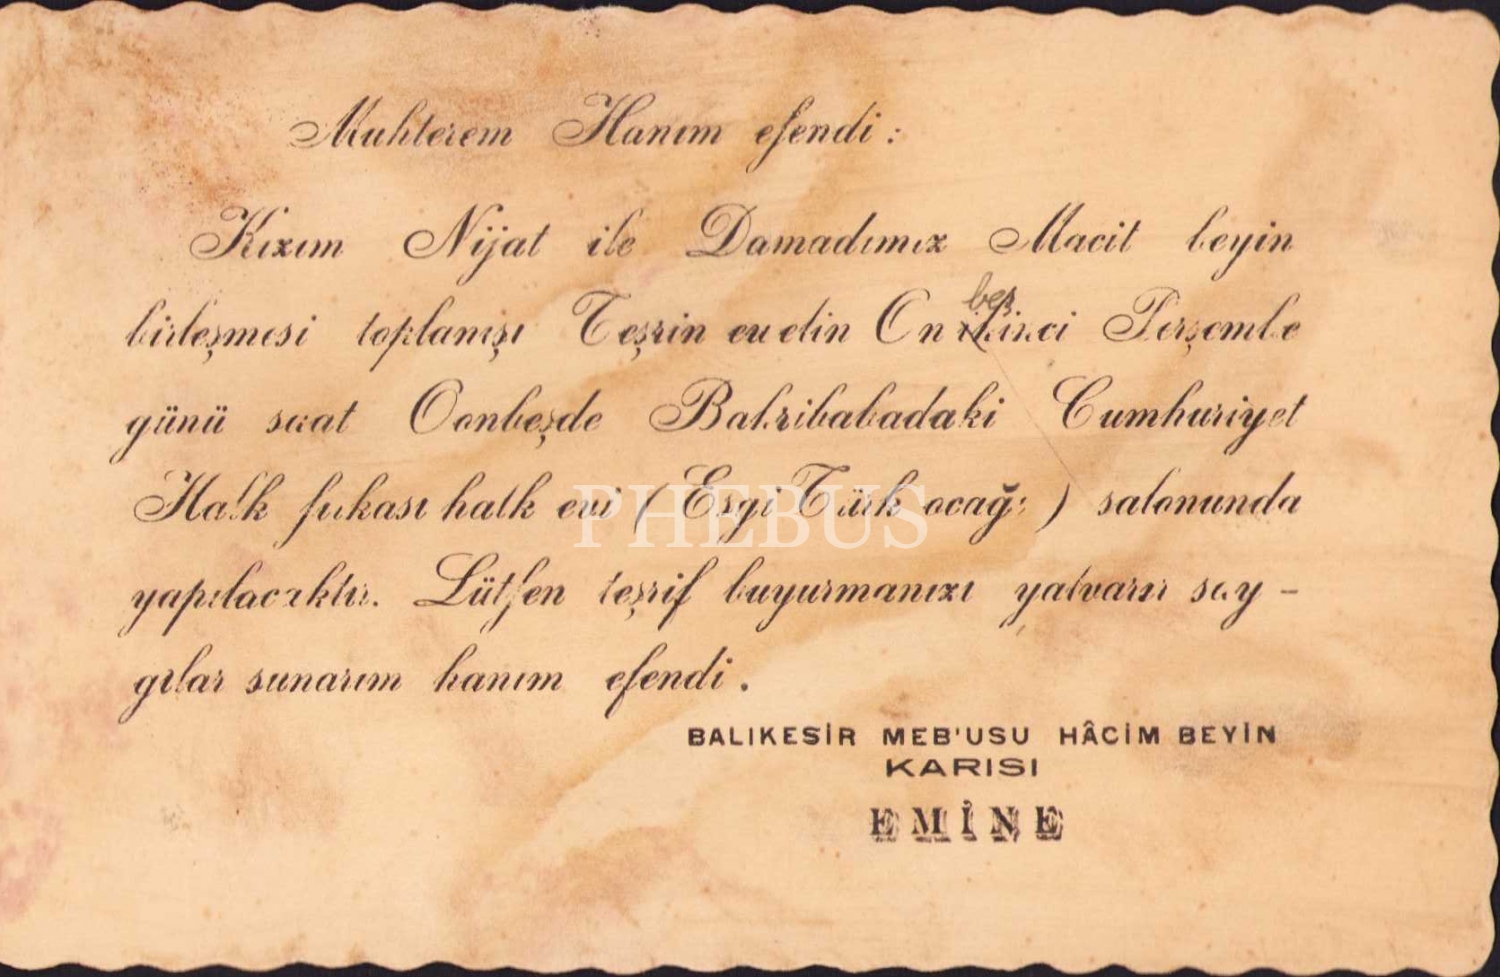 Muhterem Hanım efendi :
Kızım Nijat ile Damadımız Macit beyin
birleşmesi toplanışı Teşrin evelin On ikinci Perşembe
beş
günü saat Oonbeşde Bahribabadaki Cumhuriyet
Halk fırkası halk evi ( Esgi Türk ocağı ) salonunda
yapılacaktır. Lütfen teşrif buyurmanızı yalvarır say-
gılar sunarım hanım efendi.
BALIKESİR MEB'USU HÂCİM BEYİN
KARISI
EMİNE
PHEBUS